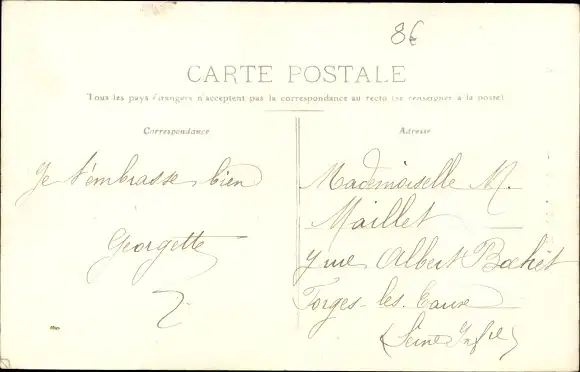 8€
CARTE POSTALE
Tous les pays étrangers n'acceptent pas la correspondance au recto (se renseigner à la poste)
Correspondance
Je t'embrasse bien
Georgette
Adresse
Mademoiselle M.
Maillet
Albert Bochet
Forges-les-Eaux
(Seine Infre)